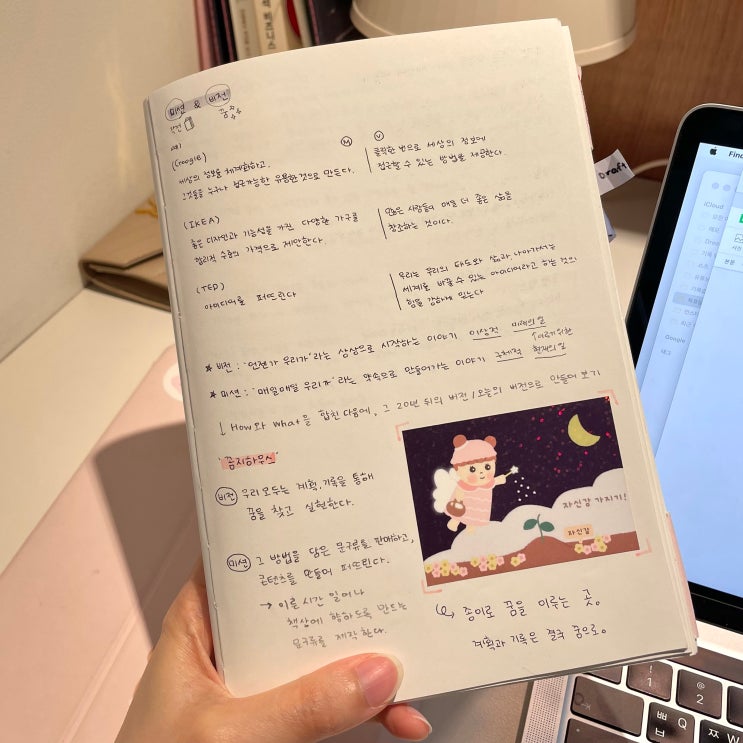 미션 & 비전
(Google)
Ⓜ
세상의 정보를 체계화하고,
그것들을 누구나 접근가능한 유용한 것으로 만든다.
Ⓥ
클릭 한 번으로 세상의 정보에
접근할 수 있는 방법을 제공한다.
(IKEA)
좋은 디자인과 기능성을 가진 다양한 가구를
합리적 수준의 가격으로 제안한다.
많은 사람들의 매일 더 좋은 삶을
창조하는 것이다.
(TED)
아이디어를 퍼뜨린다
우리는 우리의 태도와 삶과, 나아가서는
세계를 바꿀 수 있는 아이디어라고 하는 것의
힘을 강하게 믿는다
★ 비전 : '언젠가 우리가'라는 상상으로 시작하는 이야기 이상적 미래의 일
★ 미션 : '매일매일 우리가'라는 약속으로 만들어가는 이야기 구체적 현재의 일
↓ How와 What을 합친 다음에, 그 20년 뒤의 버전 / 오늘의 버전으로 만들어 보기
'꿈지하우스'
비전 우리 모두는 계획, 기록을 통해
꿈을 찾고 실현한다.
미션 그 방법을 담은 문구류를 판매하고,
콘텐츠를 만들어 퍼뜨린다.
→ 이를 시간 일어나
책상에 향하도록 만드는
문구류를 제작한다.
자신감 가지기!
자신감
↳ 종이로 꿈을 이루는 곳.
계획과 기록은 결국 꿈으로.
Draft
iCloud
Google
태그
!
1
@
2
ㅃ
ㅂ Q
ㅉ